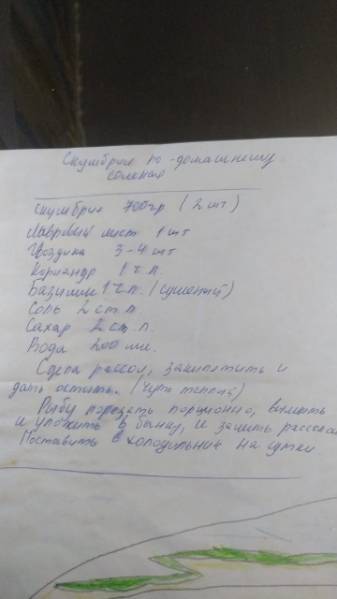 Скумбрия по-домашнему
соленая
Скумбрия 700гр (2 шт)
Лавровый лист 1 шт
Гвоздика 3-4 шт
Кориандр 1 ч.л.
Базилик 1 ч.л. (сушеный)
Соль 2 ст.л.
Сахар 2 ст.л.
Вода 200 мл.
рассол, закипятить и
дать остыть. (чуть теплый)
Рыбу порезать порционно,
и уложить в банку, и залить рассолом
Поставить в холодильник на сутки